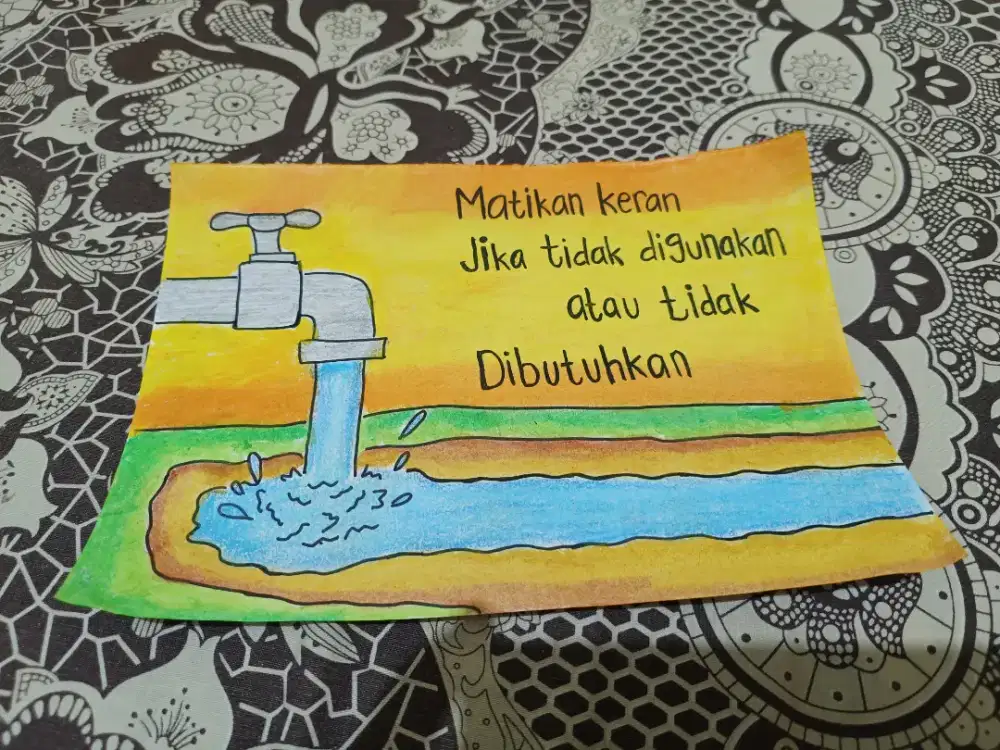 Matikan keran
Jika tidak digunakan
atau tidak
Dibutuhkan